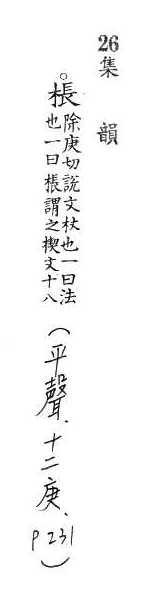 26集 韻
。棖除庚切說文杖也一曰法
也一曰棖謂之楔文十八
(平聲、十二庚、P 231)